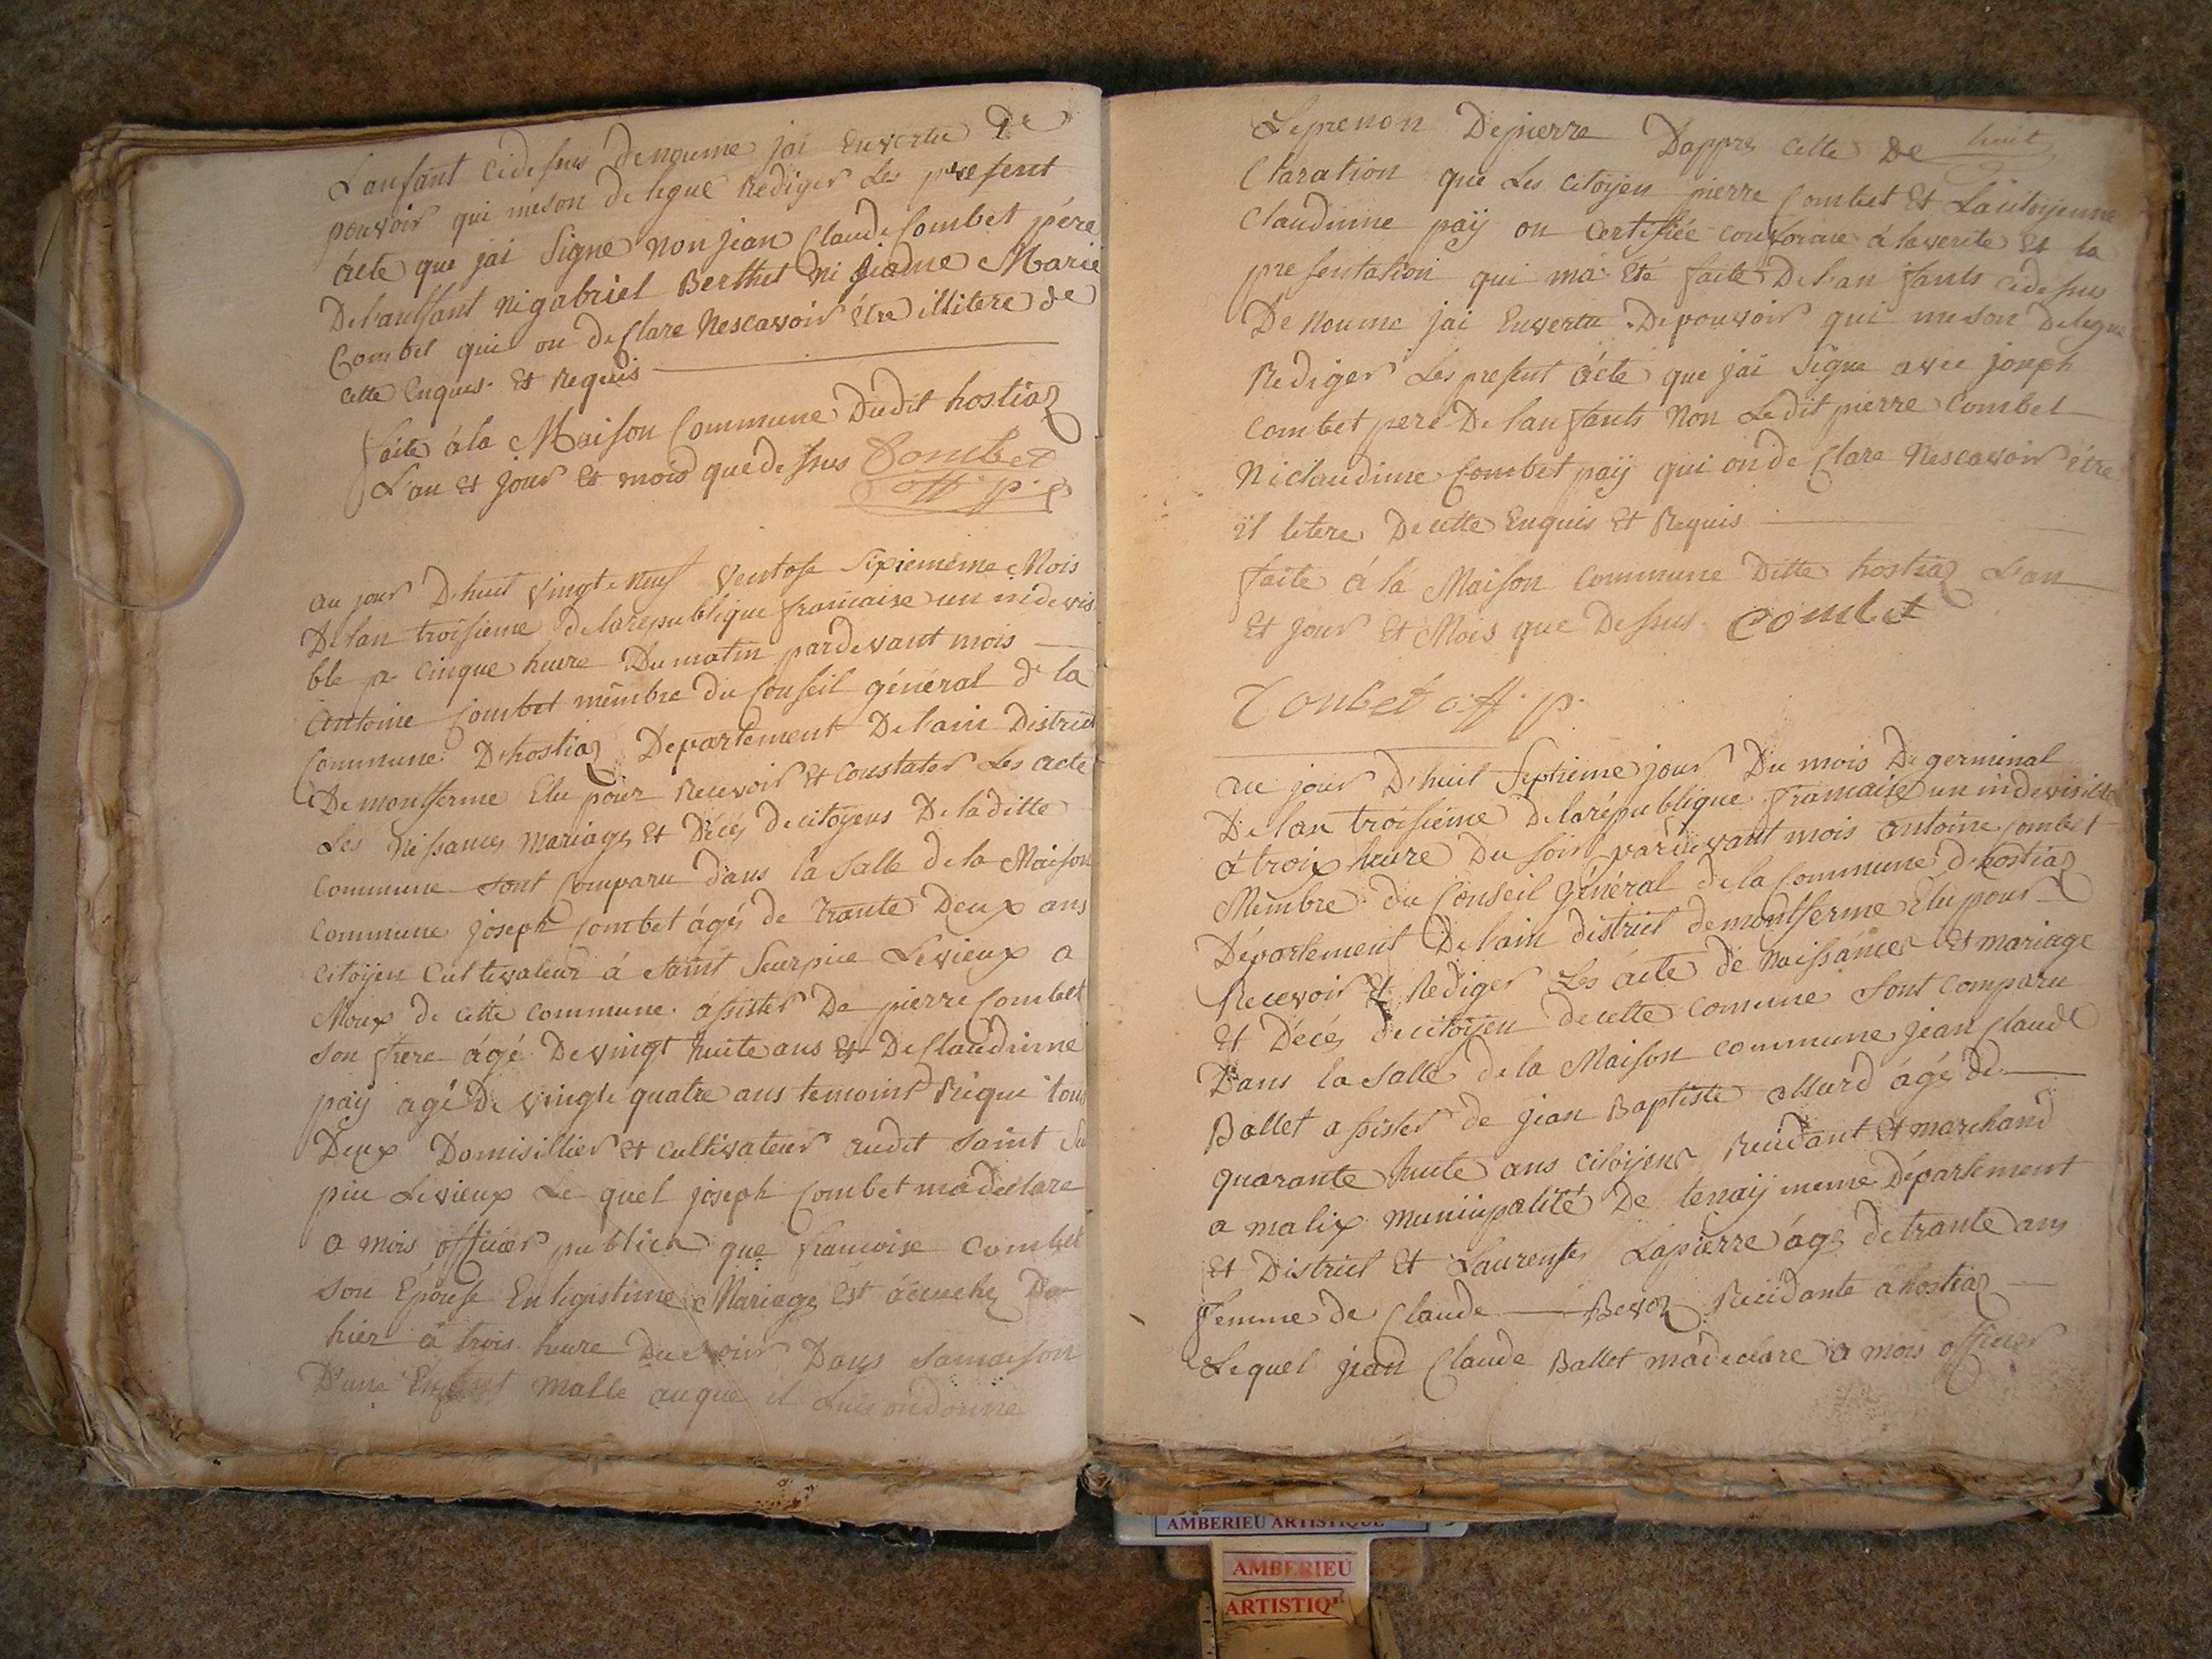 L'anfant cidessus denoume jai Envertu De
pouvoir qui meson delegue Rediger Les present
acte que jai Signe non jean Claude Combet pére
Del'anfant ni gabriel Berthet ni jiaûne Marie
Combet qui on declare Nescavoir étre illitere de
cette Enques et Requis
faite á la Maison Commune Dudit hostiaz
L'an et jour et mois que dessus Combet
off. p.
au jour D'huit vingt e neuf ventose Sixiememe Mois
De lan troisieme de larepublique francaise un indevis
ble a cinque heure Du matin pardevant mois
Antoine Combet mêmbre du Conseil général de la
Commune D'hostiaz Departement De lain District
De montferme Elu pour Recevoir et Constater Les acte
Les Nissances mariages et Décés de citoyens De la ditte
Commune sont Comparu dans la Salle de la Maison
Commune joseph Combet ágés de trante Deux ans
Citoÿen Cultivateur á saint Seurpice Levieux a
Moux de cette commune assister De pierre Combet
son frere ágé De vingt huite ans et De Claudinne
paÿ agé De vingte quatre ans temoint Rique tous
Deux Domisillier et Cultivateur audit saint Su
pice Levieux Le quel joseph Combet ma declare
a mois officier publier que francoise Combet
son Epouse En legistime Mariage Est acouche De
hier á trois heure Du soir Dans samaison
D'une Enfant malle auque il Lui ondonne
huit
Leprenon De pierre Dappres cette De
Claration que Les Citoÿen pierre Combet et La citoyenne
Claudinne paÿ on Certifiée conforme á la verite et la
presentation qui má Eté faite De l'an fants cidessus
De Noume jai Envertu De pouvoir qui meson Delegue
Rediger Les present ácte que jai Signe avec joseph
Combet pere De lanfants Non Ledit pierre Combet
Ni claudinne Combet paÿ qui on de Clare Nescavoir étre
il litere De cette Enquis et Requis
faite á lá Maison Commune Ditte hostiaz L'an
et jour et Mois que Dessus Combet
Combet off. p.
au jour D'huit Septieme jour Du mois De germinal
De lan troisieme De larépublique francaise un indevisible
á troix heure Du soir pardevant mois antoine Combet
Mêmbre du Conseil Général de la Commune d'hostiaz
Département De lain district de montferme Elu pour
Recevoir et Rediger Les ácte de Naissances et mariage
et Décés de citoÿen de cette comune sont comparu
Dans la Salle de la Maison commune jean Claude
Ballet assister de jean Baptiste allard ágé de
quarante huite ans citoÿens Reeidant et marchand
a malix municipalité De tenaÿ meme Département
et District et Laurense Lapierre áge de trante ans
femme de Claude Bevoz Reeidante a hostiaz
Lequel jean Claude Ballet ma declare a mois officier
AMBERIEU ARTISTIQUE
AMBERIEU
ARTISTIQ